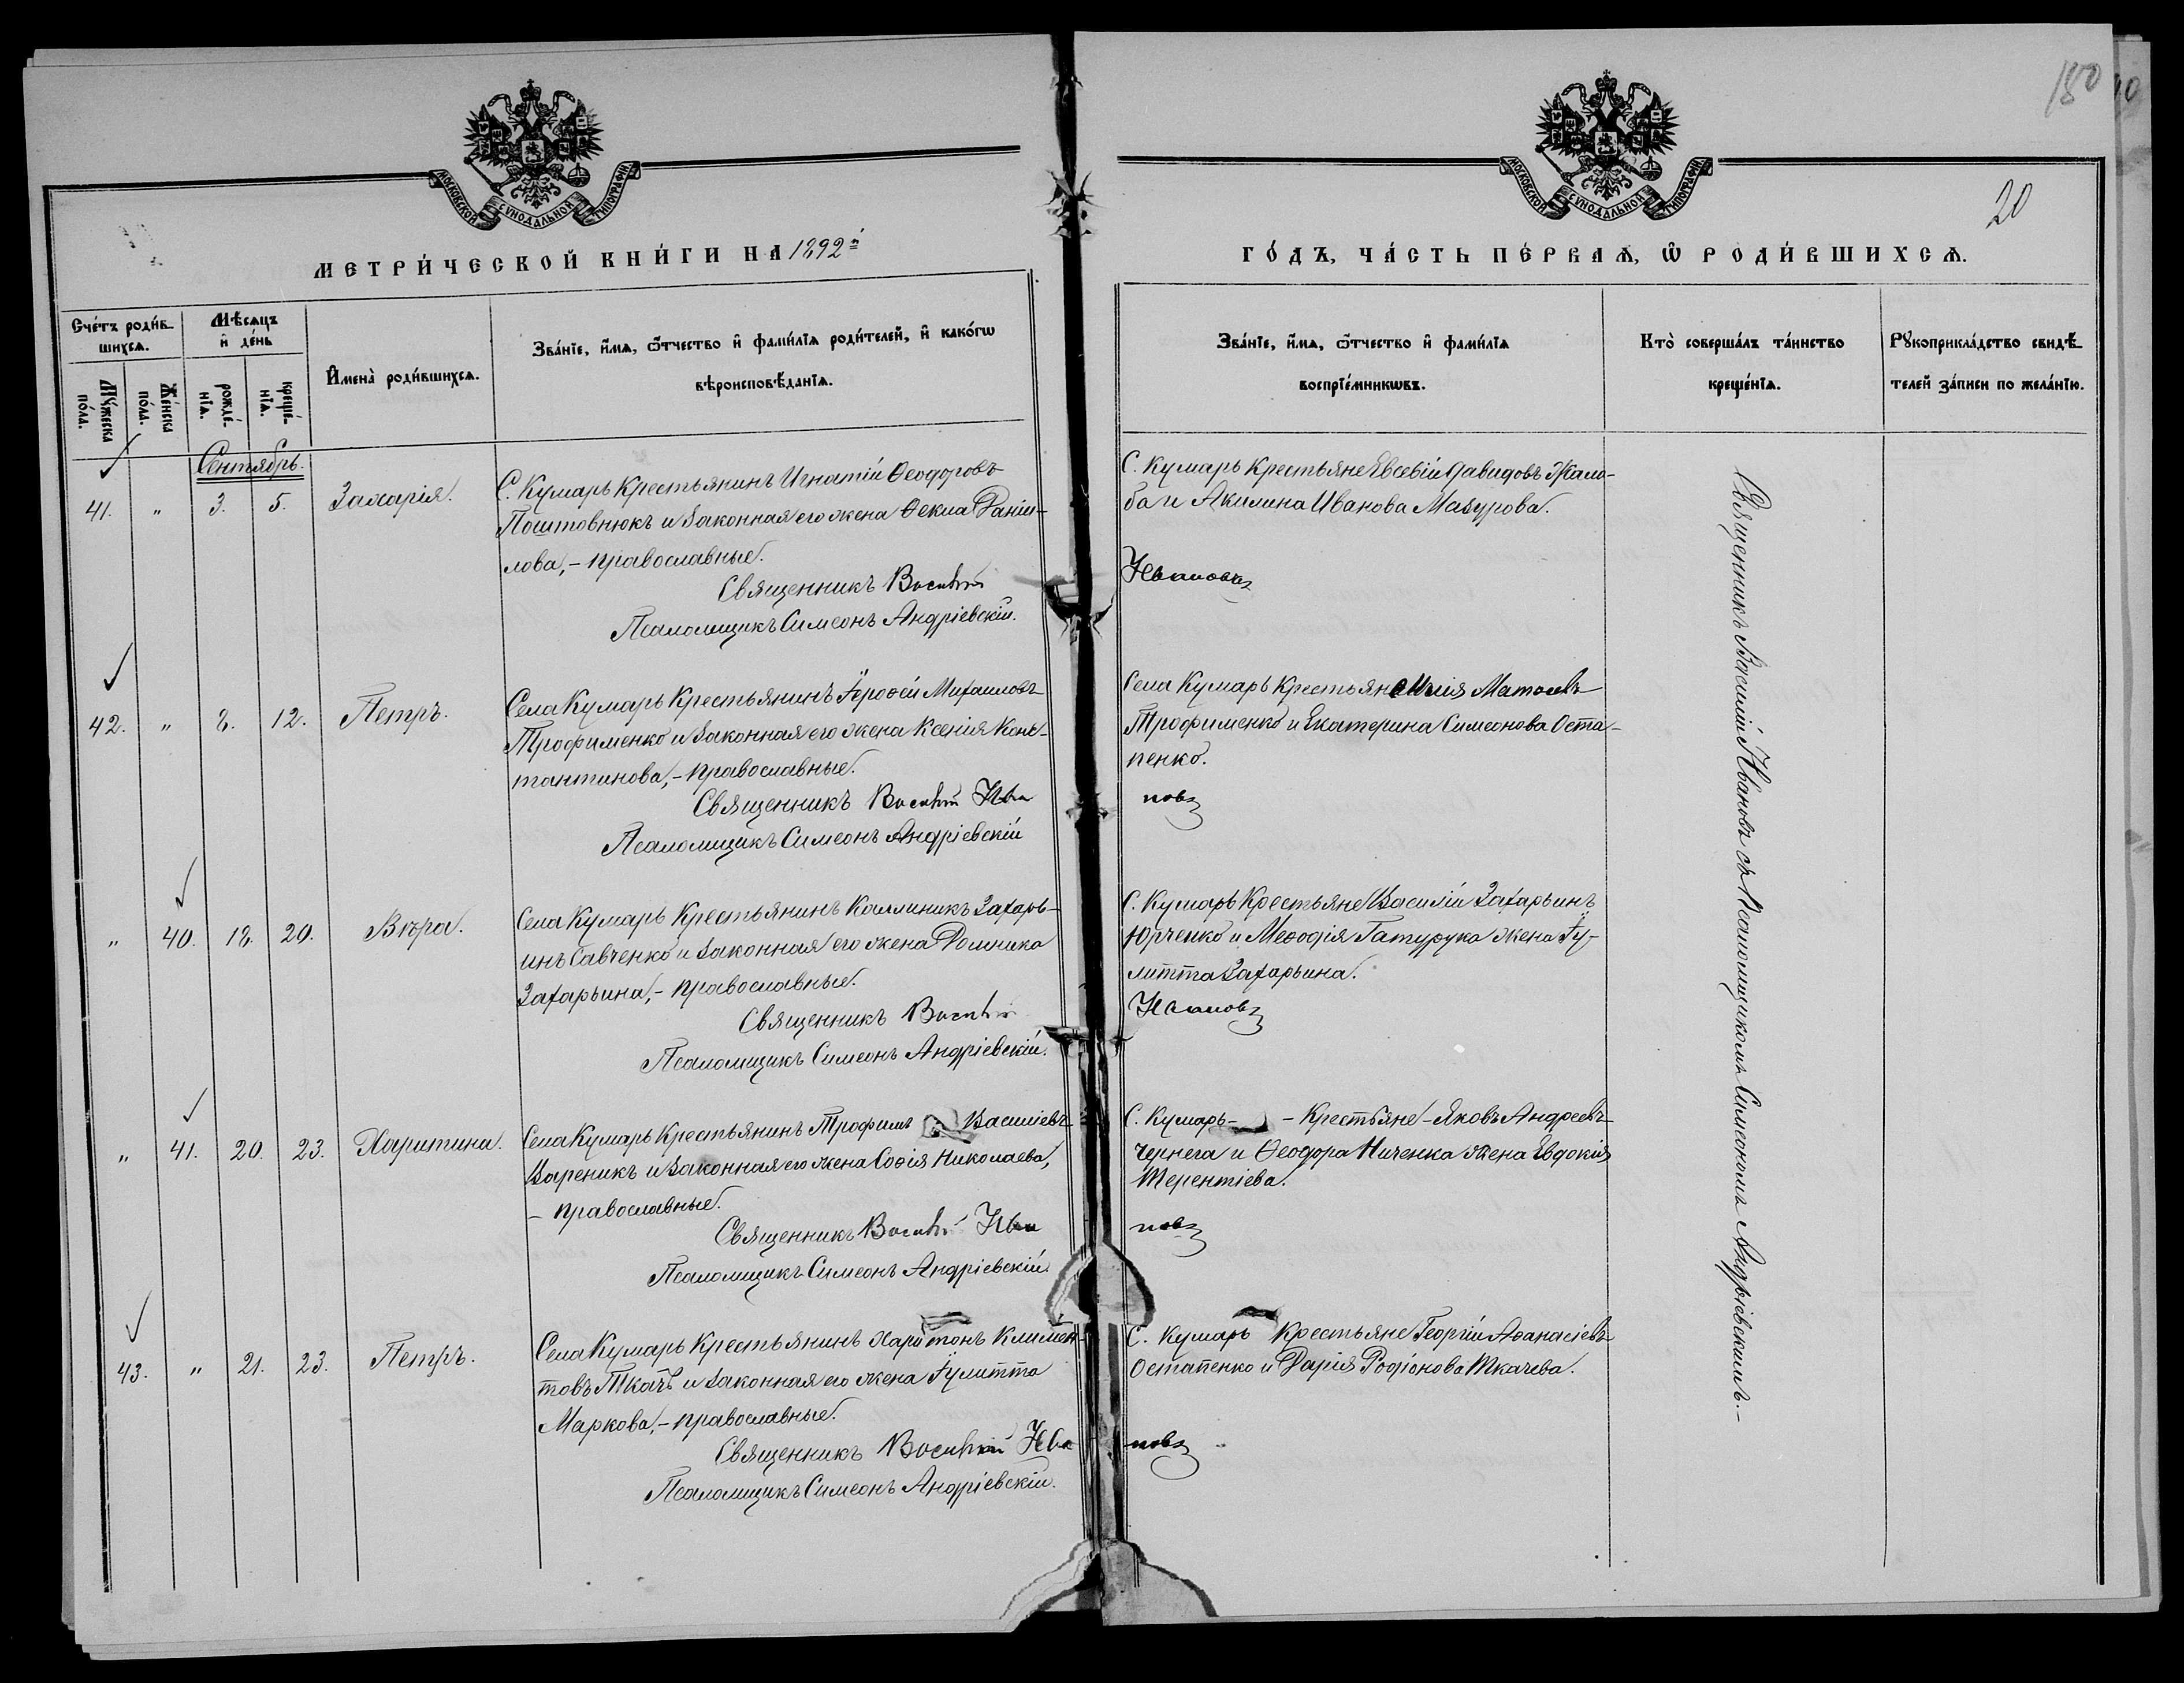 180
20
МОСКОВСКОЙ СѴНОДАЛЬНОЙ ТИПОГРАФІИ
МОСКОВСКОЙ СѴНОДАЛЬНОЙ ТИПОГРАФІИ
МЕТРИ́ЧЕСКОЙ КНИ́ГИ НА 1892й
ГО́ДЪ, ЧА́СТЬ ПЕ́РВАѦ, Ѡ҆ РОДИ́ВШИХСѦ.
Счéтъ роди́в-
шихсѧ.
Мѣ́сѧцъ
и҆ дéнь
Мꙋ́жеска
пóла.
Жéнска
пóла.
рождé-
нїѧ.
крещé-
нїѧ.
И҆менà роди́вшихсѧ.
Звáнїе, и҆́мѧ, ѻ҆́тчество и҆ фами́лїѧ роди́телей, и҆ какóгѡ
вѣроисповѣ́данїѧ.
Звáнїе, и҆́мѧ, ѻ҆́тчество и҆ фами́лїѧ
воспрїéмникѡвъ.
Ктò совершáлъ тáинство
крещéнїѧ.
Рꙋкоприклáдство свидѣ́-
телей зáписи по желáнїю.
Сентябрь.
41. " 3. 5. Захарія.
С. Кумарь Крестьянинъ Игнатій Ѳеодоровъ
Поштовнюкъ и законная его жена Ѳекла Даніи-
лова, – православные.
Священникъ Василій
Псаломщикъ Симеонъ Андріевскій.
С. Кумарь Крестьяне Евсевій Давидовъ Жало-
ба и Акилина Иванова Мазурова.
Ивановъ
42. " 8. 12. Петръ.
Села Кумарь Крестьянинъ Іероѳей Михаиловъ
Трофименко и законная его жена Ксенія Конс-
тантинова, – православные.
Священникъ Василій Ива
Псаломщикъ Симеонъ Андріевскій
Села Кумарь Крестьяне Илія
Трофименко и Екатерина Симеонова Оста-
пенко.
новъ
" 40. 18. 20. Вѣра.
Села Кумарь Крестьянинъ Каллиникъ Захарь-
инъ Савченко и законная его жена Домника
Захарьина, – православные.
Священникъ Василій
Псаломщикъ Симеонъ Андріевскій.
С. Кумарь Крестьяне Василій Захарьинъ
Юрченко и Меѳодія жена Іу-
литта Захарьина.
Ивановъ
" 41. 20. 23. Харитина.
Села Кумарь Крестьянинъ Трофимъ Василіевъ
Вареникъ и законная его жена Софія Николаева,
– православные.
Священникъ Василій Ива
Псаломщикъ Симеонъ Андріевскій
С. Кумарь – – Крестьяне – Яковъ Андреевъ
Чернега и Ѳеодора Ниченка жена Евдокія
Терентіева.
новъ
43. " 21. 23. Петръ.
Села Кумарь Крестьянинъ Харитонъ Климен-
товъ Ткачъ и законная его жена Іулитта
Маркова, – православные.
Священникъ Василій Ива
Псаломщикъ Симеонъ Андріевскій.
С. Кумарь Крестьяне Георгій Аѳанасіевъ
Остапенко и Дарія Родіонова Ткачева.
новъ
Священникъ Василій Ивановъ съ Псаломщикомъ Симеономъ Андріевскимъ. –